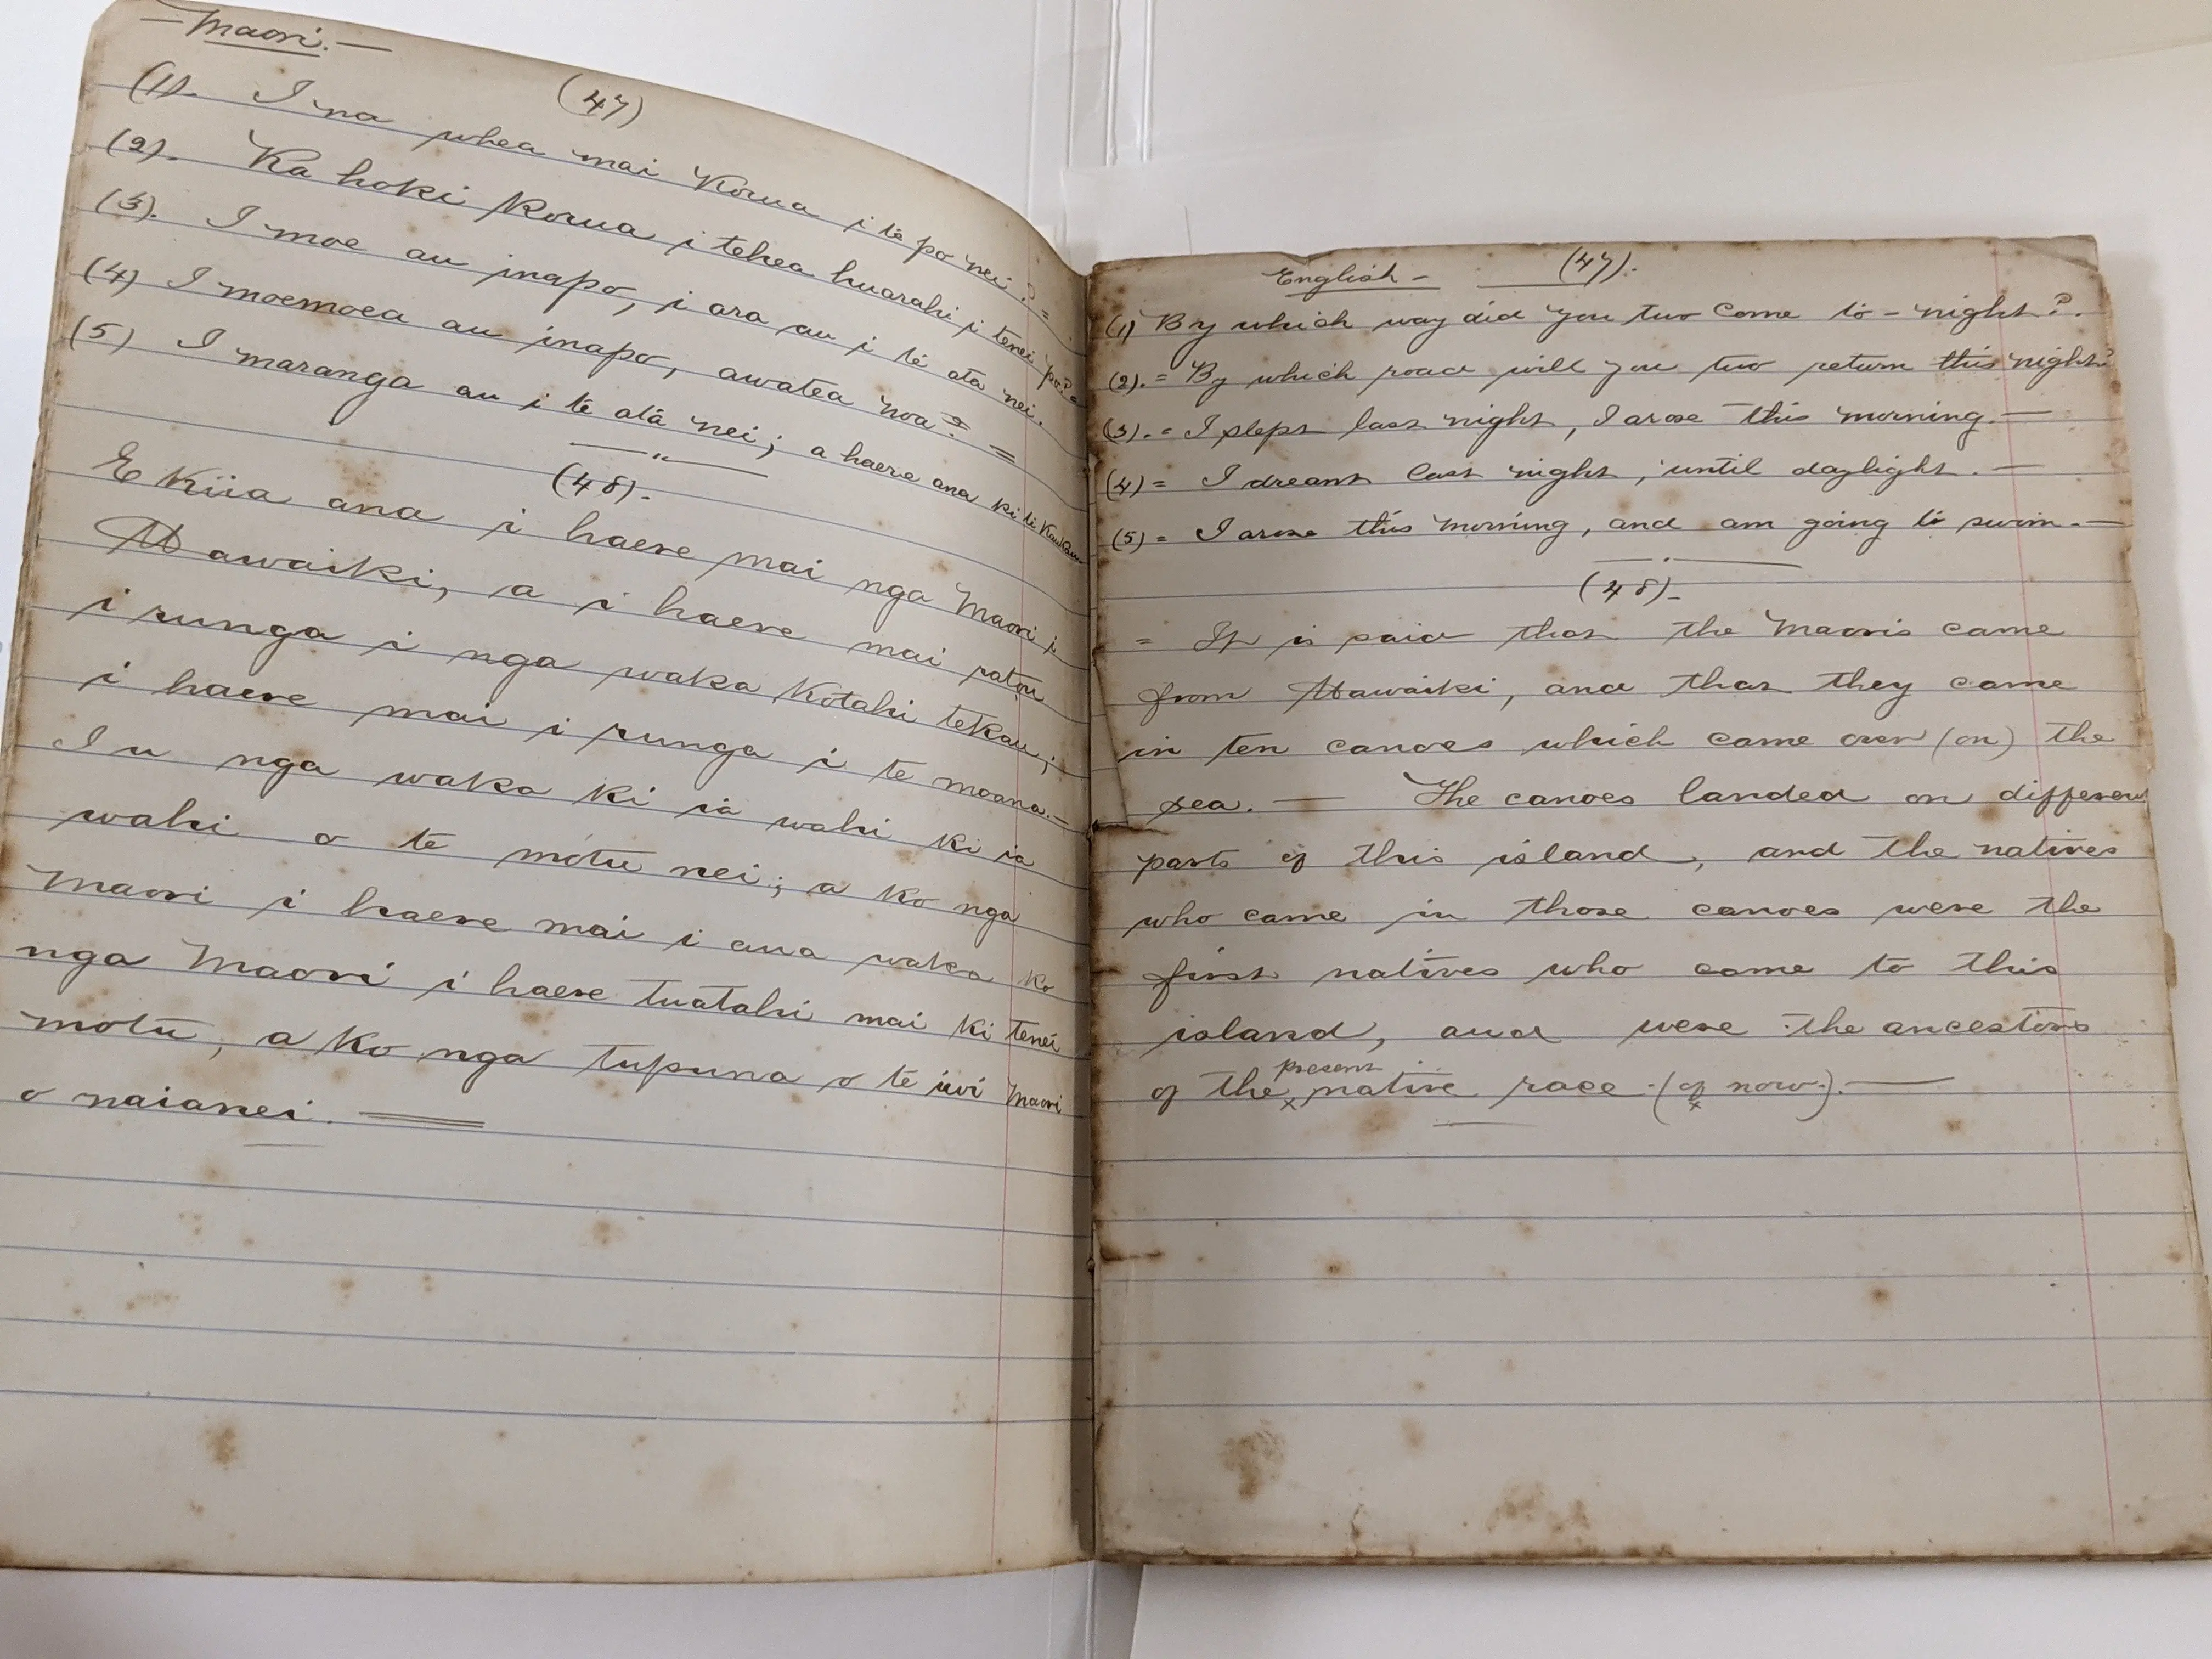 — Maori. —
(47)
(1). I na whea mai Korua i te po nei? =
(2). Ka hoki Korua i tehea huarahi i tenei po? =
(3). I moe au inapo, i ara au i te ata nei.
(4) I moemoea au inapo, awatea noa. =
(5) I maranga au i te ata nei; a haere ana ki te Kaukau
(48).-
E Kiia ana i haere mai nga Maori i
Hawaiki, a i haere mai ratou
i runga i nga waka Kotahi tekau;
i haere mai i runga i te moana. —
I u nga waka ki ia wahi ki ia
wahi o te motu nei; a ko nga
Maori i haere mai i aua waka ko
nga Maori i haere tuatahi mai ki tenei
motu, a ko nga tupuna o te iwi Maori
o naianei.
English - (47).
(1) By which way did you two come to-night?.
(2). = By which road will you two return this night?
(3). = I slept last night, I arose this morning. —
(4) = I dreamt last night, until daylight. —
(5) = I arose this morning, and am going to swim. —
(48)-
= It is said that the Maoris came
from Hawaiki, and that they came
in ten canoes which came over (on) the
sea. — The canoes landed on different
parts of this island, and the natives
who came in those canoes were the
first natives who came to this
island, and were the ancestors
of the present native race (of now). —